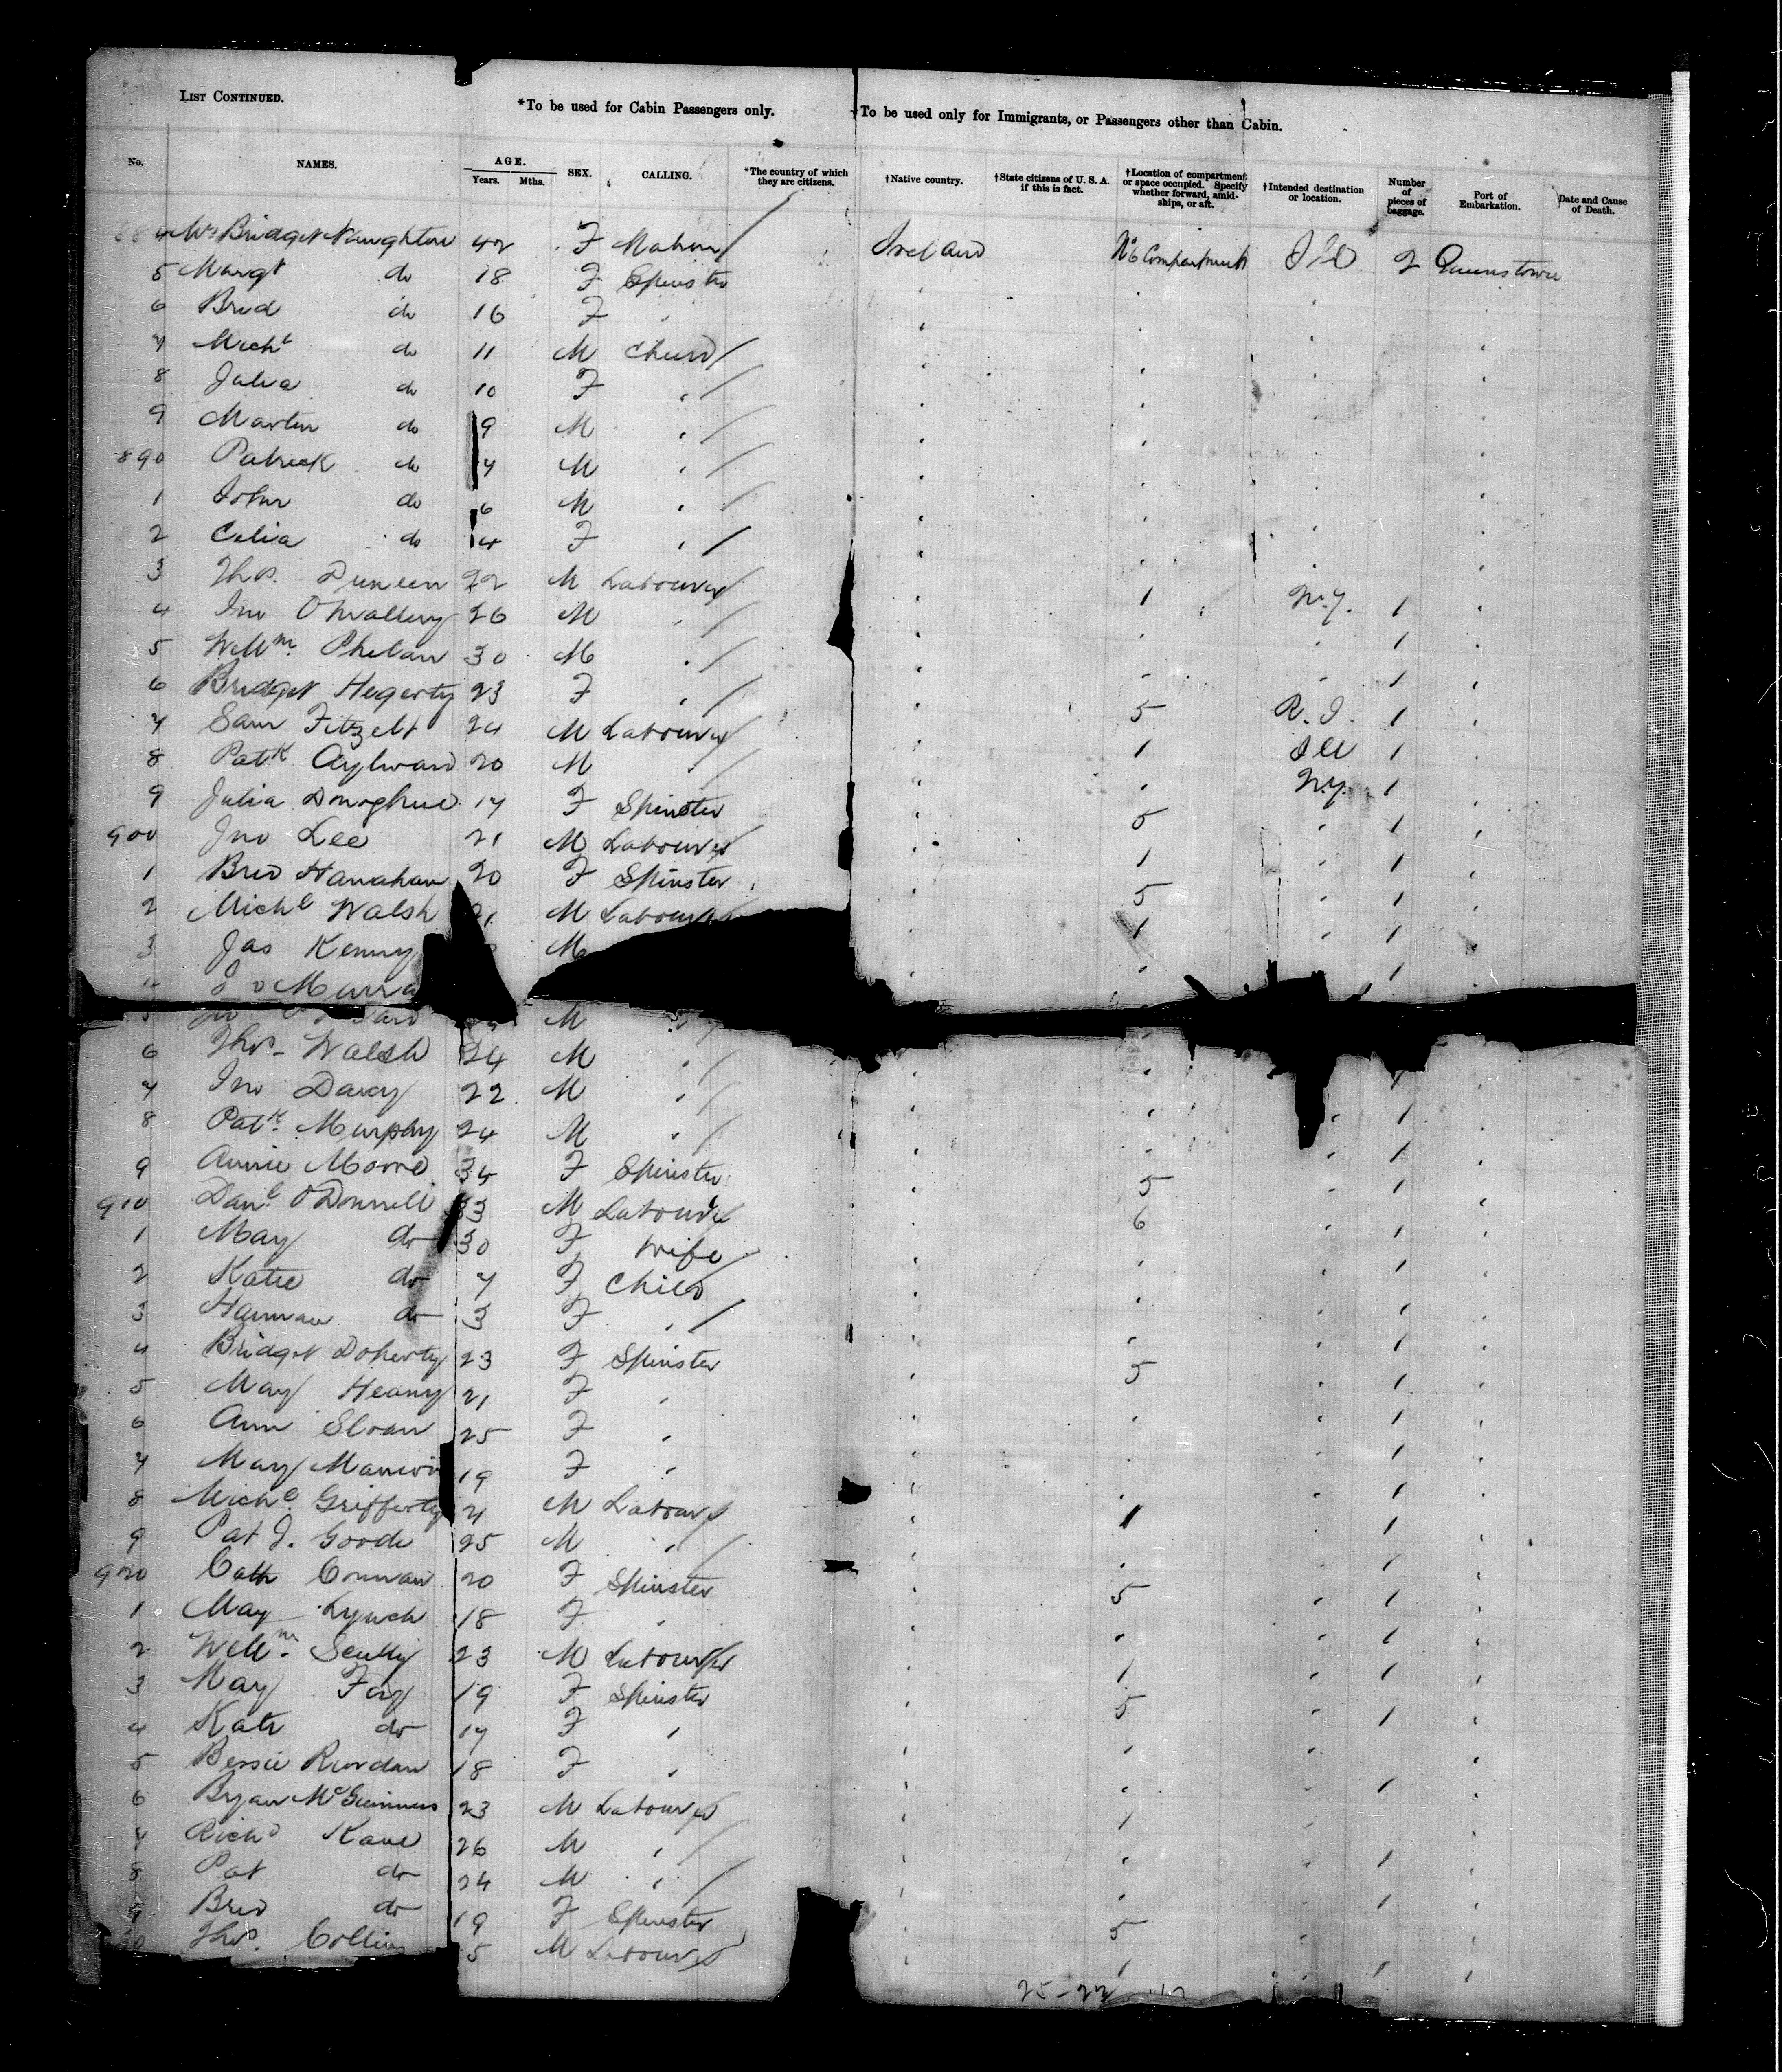 LIST CONTINUED.
*To be used for Cabin Passengers only.
†To be used only for Immigrants, or Passengers other than Cabin.
No. NAMES. AGE. Years. Mths. SEX. CALLING. *The country of which they are citizens. †Native country. †State citizens of U. S. A. if this is fact. †Location of compartment or space occupied. Specify whether forward, amidships, or aft. †Intended destination or location. Number of pieces of baggage. Port of Embarkation. Date and Cause of Death.
4 Mrs Bridget Naughton 42 F Matron Ireland No 6 Compartment Ill 2 Queenstown
5 Margt do 18 F Spinster
6 Brid do 16 F
7 Michl do 11 M Child
8 Julia do 10 F
9 Martin do 9 M
890 Patrick do 7 M
1 John do 6 M
2 Celia do 4 F
3 Thos. Duneen 22 M Labourer 1 N.Y. 1
4 Jno O'Malley 26 M 1
5 Willm. Phelan 30 M 1
6 Bridget Hegerty 23 F 5 R. I. 1
7 Sam Fitzelt 24 M Labourer 1 Ill 1
8 Patk Aylward 20 M N.Y. 1
9 Julia Donoghue 17 F Spinster 5 1
900 Jno Lee 21 M Labourer 1 1
1 Brid Hanahan 20 F Spinster 5 1
2 Michl Walsh 21 M Labourer 1 1
3 Jas Kenny M 1
4 Murra
5 M
6 Thos. Walsh 24 M
7 Jno Davey 22 M 1
8 Patk. Murphy 24 M 1
9 Annie Moore 34 F Spinster 5 1
910 Danl. O'Donnell 33 M Labourer 6 1
1 May do 30 F Wife 1
2 Katie do 7 F Child 1
3 Hannah do 3 F 1
4 Bridget Doherty 23 F Spinster 5 1
5 May Heany 21 F 1
6 Ann Sloan 25 F 1
7 May 19 F 1
8 Michl. Grifferty 21 M Labourer 1 1
9 Pat J. Goode 25 M 1
920 Cath Connan 20 F Spinster 5 1
1 May Lynch 18 F 1
2 Willm. Scully 23 M Labourer 1 1
3 May Foy 19 F Spinster 5 1
4 Kate do 17 F
5 Bessie Riordan 18 F 1
6 Bryan McGuinness 23 M Labourer 1
7 Richd Kane 26 M 1
8 Pat do 24 M 1
9 Brid do 19 F Spinster 5
30 Thos. Collins 5 M Labourer 1 1
25-22